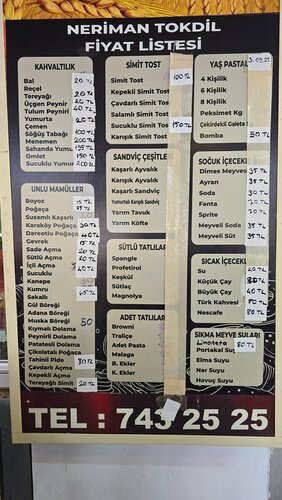 NERİMAN TOKDİL
FİYAT LİSTESİ
KAHVALTILIK
Bal 20 TL
Reçel
Tereyağı 20 TL
Üçgen Peynir 20 TL
Tulum Peyniri 40 TL
Yumurta 20 TL
Çemen
Söğüş Tabağı 100 TL
Menemen 200 TL
Sahanda Yumurta
Omlet 150 TL
Sucuklu Yumurta 200 TL
UNLU MAMÜLLER
Boyoz 15 TL
Poğaça
Susamlı Kaşarlı
Karaköy Poğaça 20 TL
Dereotlu Poğaça 40 TL
Gevrek 15 TL
Sade Açma 20 TL
Sütlü Açma 20 TL
İçli Açma 40 TL
Sucuklu
Kanepe
Kumru 65 TL
Sakallı
Gül Böreği
Adana Böreği
Muska Böreği 50
Kıymalı Dolama
Peynirli Dolama
Patatesli Dolama
Çikolatalı Poğaça
Tahinli Pide 80 TL
Çavdarlı Açma
Kepekli Açma
Tereyağlı Simit 20 TL
SİMİT TOST
Simit Tost 100 TL
Kepekli Simit Tost
Çavdarlı Simit Tost
Salamlı Simit Tost
Sucuklu Simit Tost 150 TL
Karışık Simit Tost
SANDVİÇ ÇEŞİTLERİ
Kaşarlı Ayvalık
Karışık Ayvalık
Kaşarlı Sandviç
Yumurtalı Karışık Sandviç
Yarım Tavuk
Yarım Köfte
SÜTLÜ TATLILAR
Spangle
Profiterol
Keşkül
Sütlaç
Magnolya
ADET TATLILAR
Browni
Traliçe
Adet Pasta
Malaga
B. Ekler
K. Ekler
YAŞ PASTALAR
4 Kişilik
6 Kişilik
8 Kişilik
Peksimet Kg
Çekirdekli Galeta
Bomba 50 TL
SOĞUK İÇECEKLER
Dimes Meyve 35 TL
Ayran 35 TL
Soda 30 TL
Fanta 70 TL
Sprite 70 TL
Meyveli Soda 35 TL
Meyveli Süt 35 TL
SICAK İÇECEKLER
Su 20 TL
Küçük Çay
Büyük Çay 40 TL
Türk Kahvesi
Nescafe 80 TL
SIKMA MEYVE SULARI
Limonata 80 TL
Portakal Suyu
Elma Suyu
Nar Suyu
Havuç Suyu
TEL : 743 25 25